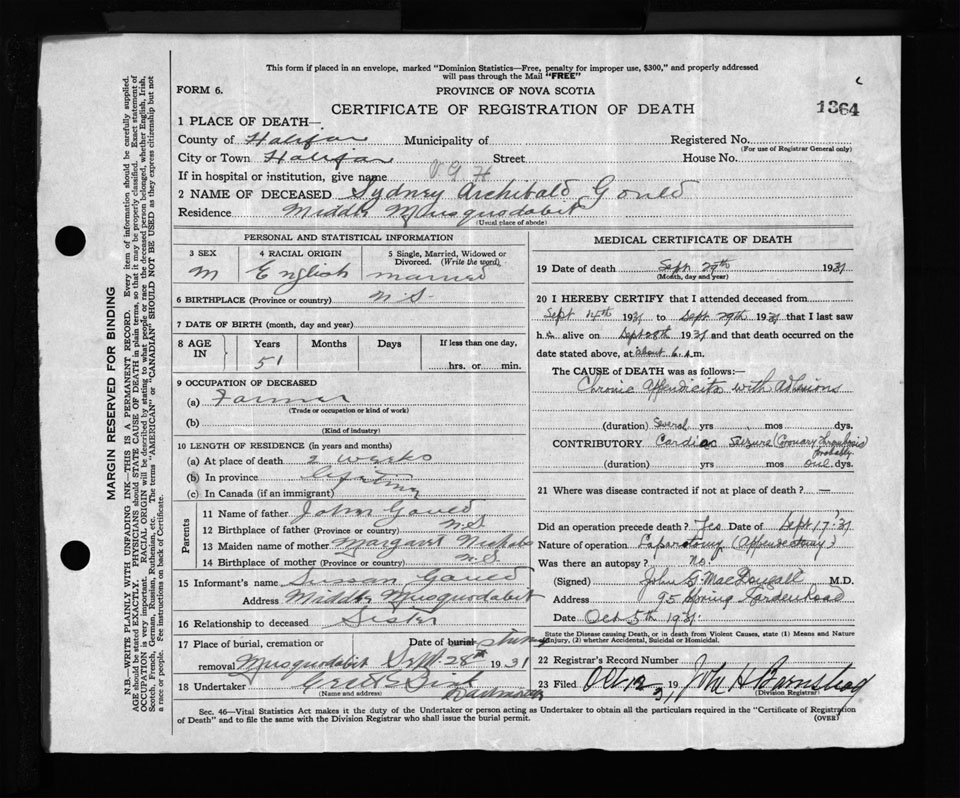 This form if placed in an envelope, marked "Dominion Statistics—Free, penalty for improper use, $300," and properly addressed
will pass through the Mail "FREE"
FORM 6.
PROVINCE OF NOVA SCOTIA
CERTIFICATE OF REGISTRATION OF DEATH
1364
1 PLACE OF DEATH—
County of Halifax Municipality of Registered No.
(For use of Registrar General only)
City or Town Halifax Street House No.
If in hospital or institution, give name V G H
2 NAME OF DECEASED Sydney Archibald Gould
Residence Middle Musquodobit
(Usual place of abode)
PERSONAL AND STATISTICAL INFORMATION
3 SEX 4 RACIAL ORIGIN 5 Single, Married, Widowed or
Divorced. (Write the word)
M English married
6 BIRTHPLACE (Province or country) N.S.
7 DATE OF BIRTH (month, day and year)
8 AGE IN Years Months Days If less than one day,
51 hrs. or min.
9 OCCUPATION OF DECEASED
(a) Farmer
(Trade or occupation or kind of work)
(b)
(Kind of industry)
10 LENGTH OF RESIDENCE (in years and months)
(a) At place of death 2 weeks
(b) In province lifetime
(c) In Canada (if an immigrant)
Parents
11 Name of father John Gould
12 Birthplace of father (Province or country) N.S
13 Maiden name of mother Margaret Nichols
14 Birthplace of mother (Province or country) N.S
15 Informant's name Sussan Gould
Address Middle Musquodobit
16 Relationship to deceased Sister
17 Place of burial, cremation or Date of burial
removal Musquodobit Sept. 28th 1931
18 Undertaker
(Name and address)
MEDICAL CERTIFICATE OF DEATH
19 Date of death Sept 29th 1931
(Month, day and year)
20 I HEREBY CERTIFY that I attended deceased from
Sept 14th 1931 to Sept 29th 1931 that I last saw
h e alive on Sept 28th 1931 and that death occurred on the
date stated above, at about 6 A.m.
The CAUSE of DEATH was as follows:—
Chronic Appendicitis with adhesions
(duration) Several yrs mos dys.
CONTRIBUTORY Cardiac Seizure (Coronary thrombosis)
probably
(duration) yrs mos one dys.
21 Where was disease contracted if not at place of death? —
Did an operation precede death? Yes Date of Sept 17 '31
Nature of operation Laparotomy (Appendectomy)
Was there an autopsy? no.
(Signed) John G. MacDougall M.D.
Address 95 Spring Garden Road
Date Oct 5th 1931.
State the Disease causing Death, or in death from Violent Causes, state (1) Means and Nature
Injury, (2) whether Accidental, Suicidal or Homicidal.
22 Registrar's Record Number
23 Filed Oct 12 19 31
(Division Registrar)
Sec. 46—Vital Statistics Act makes it the duty of the Undertaker or person acting as Undertaker to obtain all the particulars required in the "Certificate of Registration
of Death" and to file the same with the Division Registrar who shall issue the burial permit.
(OVER)
MARGIN RESERVED FOR BINDING
N.B.—WRITE PLAINLY WITH UNFADING INK—THIS IS A PERMANENT RECORD. Every item of information should be carefully supplied.
AGE should be stated EXACTLY. PHYSICIANS should STATE CAUSE OF DEATH in plain terms, so that it may be properly classified. Exact statement of
OCCUPATION is very important. RACIAL ORIGIN will be described by stating to what people or race the deceased person belonged, whether English, Irish,
Scotch, French, German, Russian, Ruthenian, etc. The terms "AMERICAN" or "CANADIAN" SHOULD NOT BE USED as they express citizenship but not
a race or people. See instructions on back of Certificate.